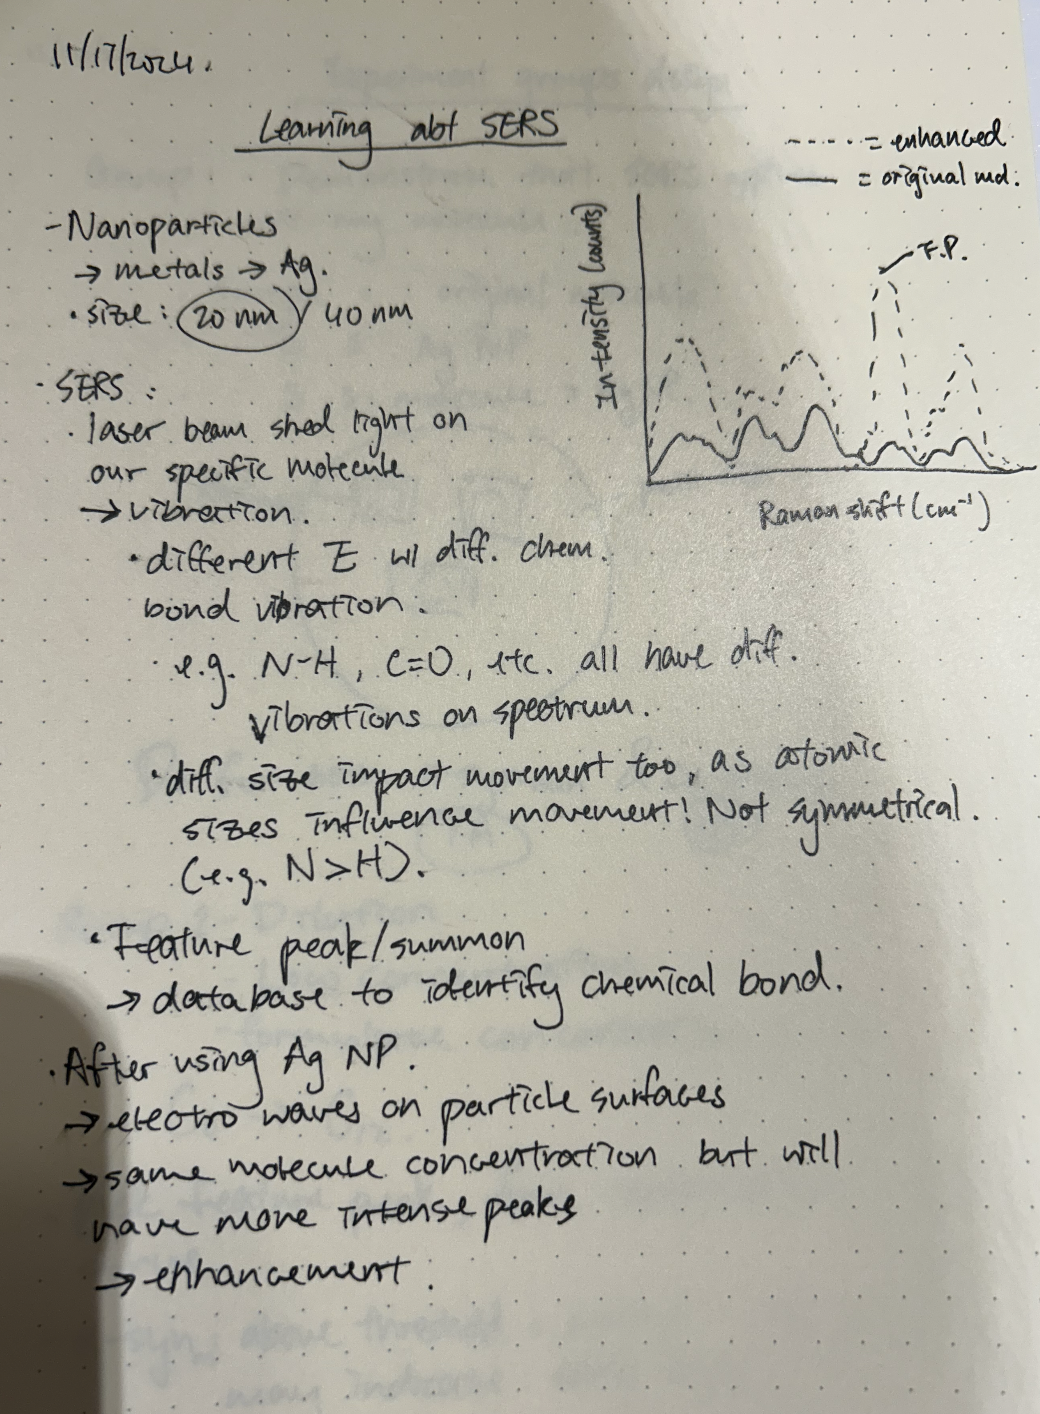 11/17/2024.
Learning abt SERS
---- = enhanced
— = original md.
- Nanoparticles
→ metals → Ag.
· size : 20 nm / 40 nm
Intensity (counts)
F.P.
Raman shift (cm⁻¹)
· SERS :
· laser beam shed light on
our specific molecule
→ vibration.
· different E w/ diff. chem.
bond vibration.
· e.g. N-H, C=O, etc. all have diff.
vibrations on spectrum.
· diff. size impact movement too, as atomic
sizes influence movement! Not symmetrical.
(e.g. N>H).
· Feature peak/summon
→ database to identify chemical bond.
· After using Ag NP.
→ electro waves on particle surfaces
→ same molecule concentration but will
have more intense peaks
→ enhancement.